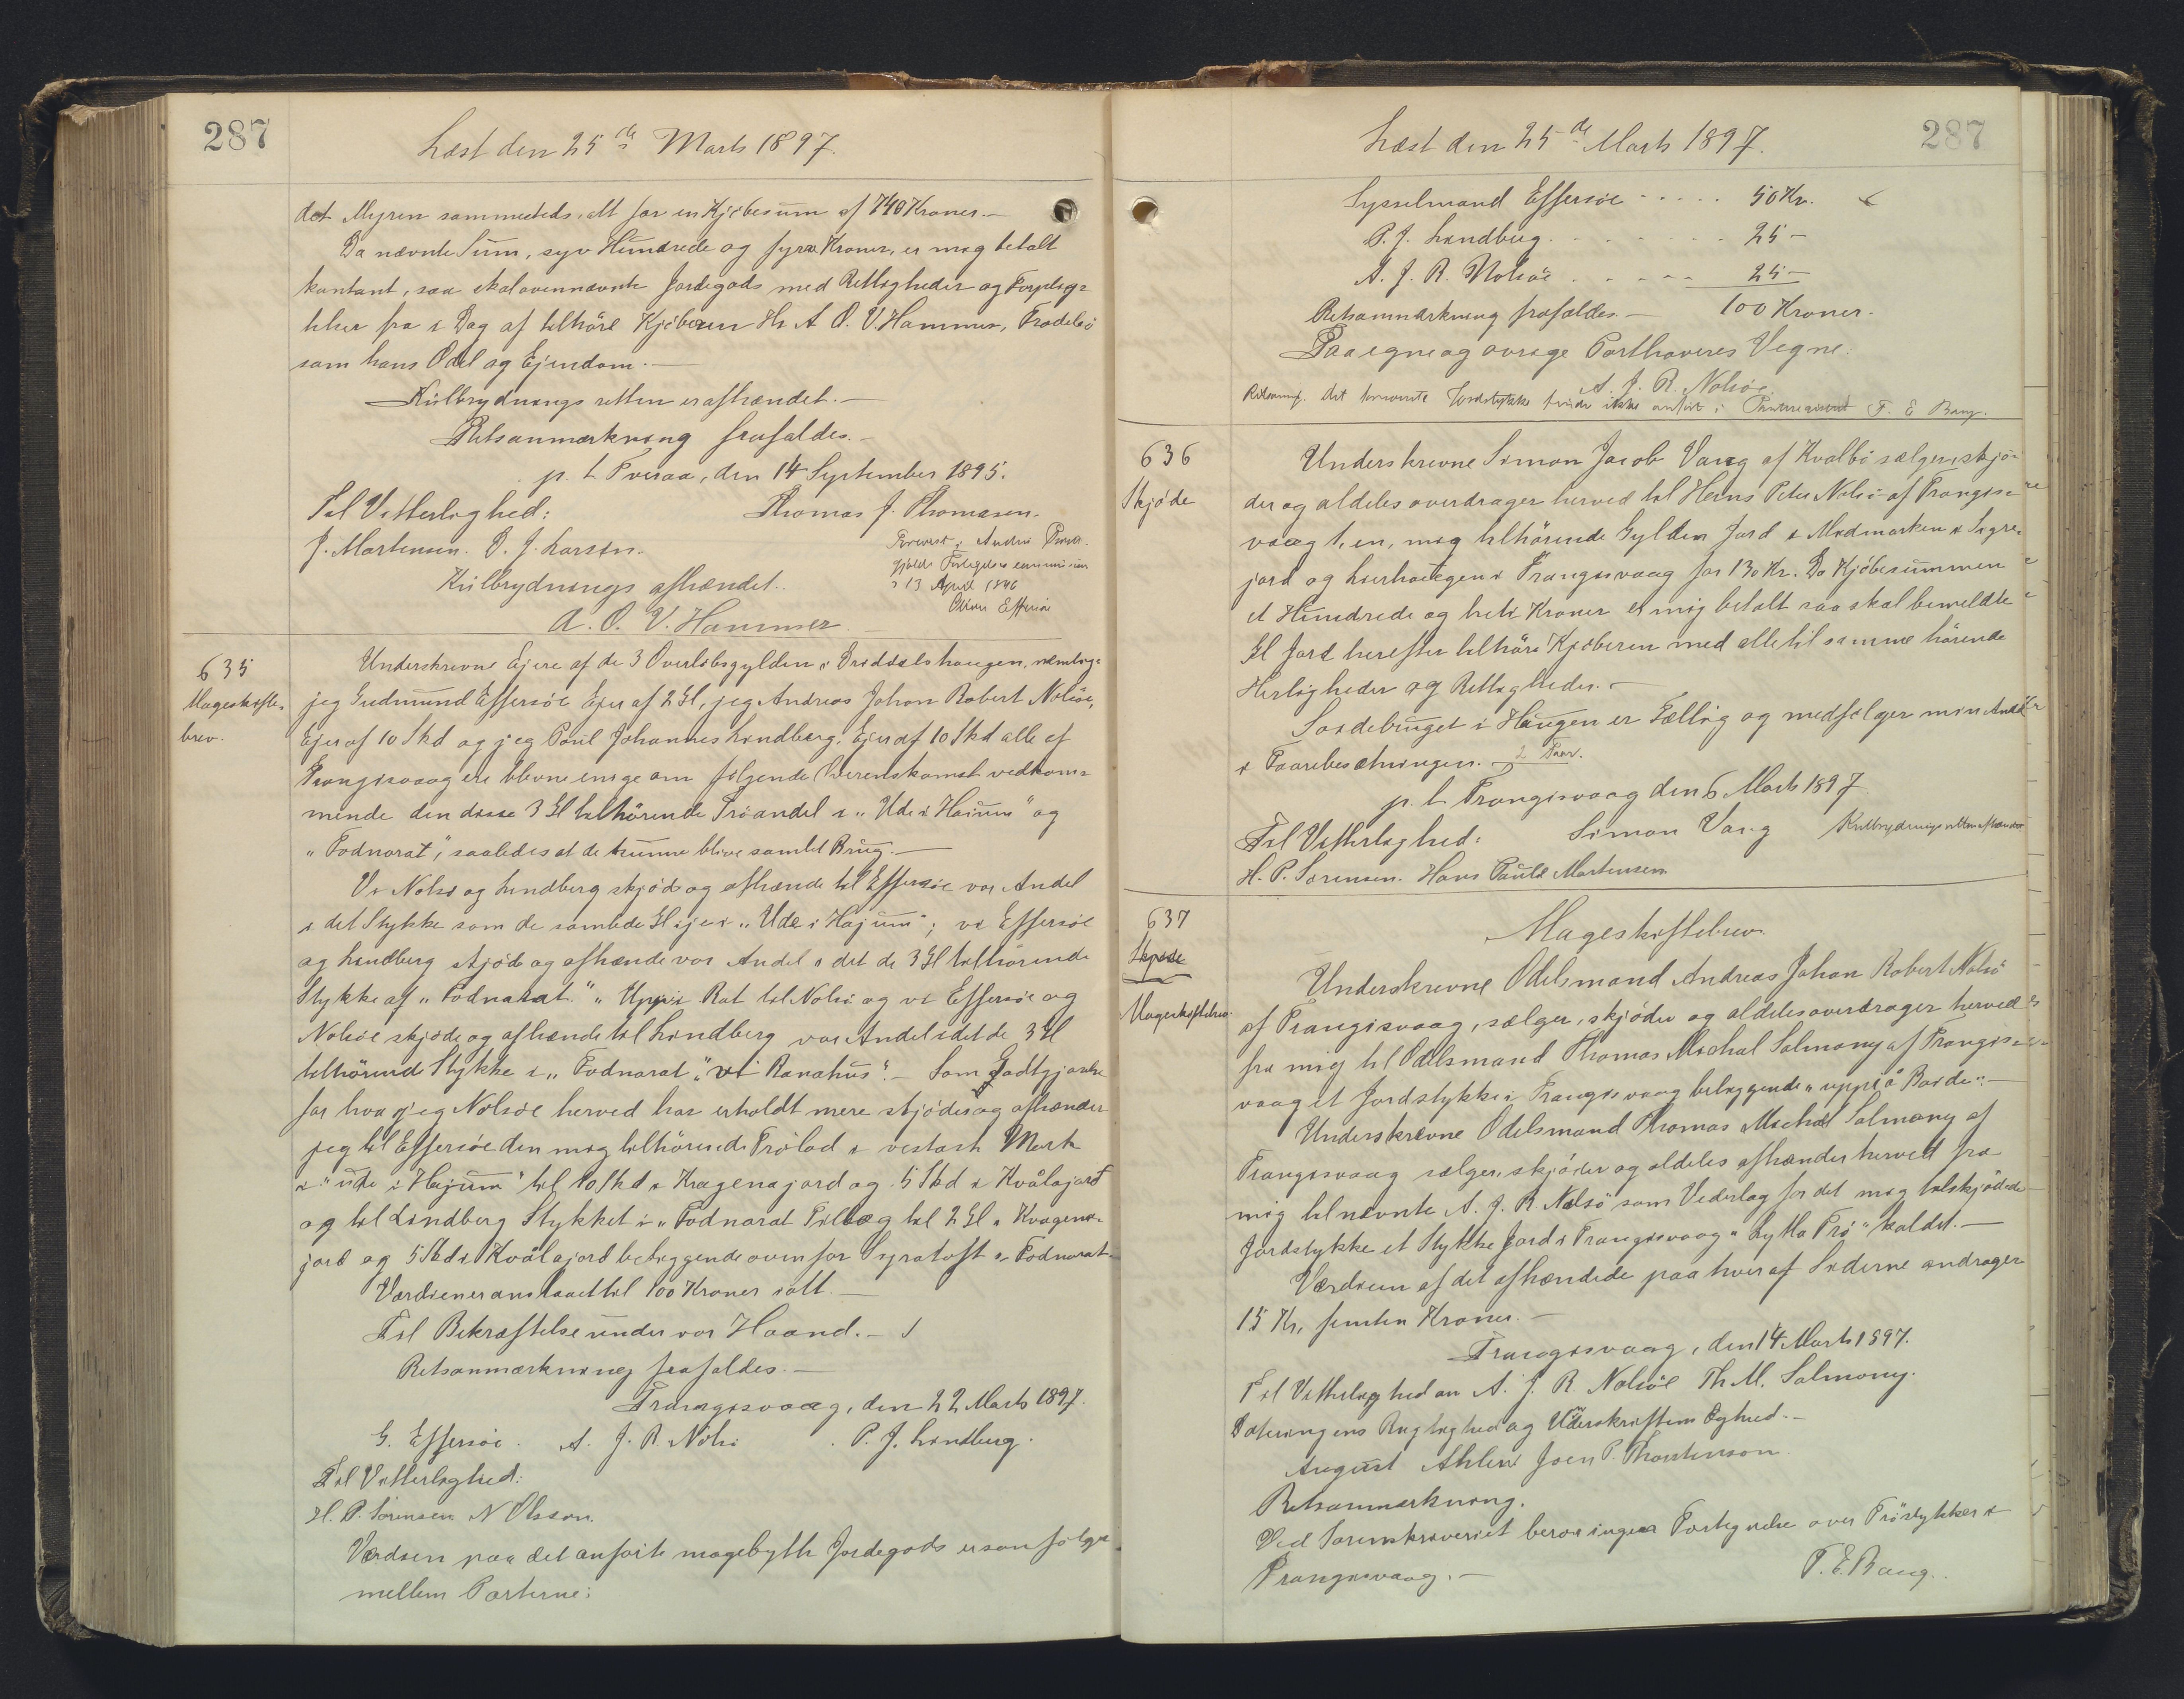 287
Læst den 25de Marts 1897.
det Myren sammesteds, alt for en Kjöbesum af 740 Kroner.-
Da nævnte Sum, syv Hundrede og fyra Kroner, er mig betalt
kontant, saa skal ovennævnte Jordegods med Rettigheder og Forplig=
telser fra i Dag af tilhöre Kjöberen Hr. A. O. V. Hammer, Frodebö
som hans Odel og Ejendom.-
Kulbrydnings retten er afhændet.-
Retsanmærkning frafaldes.-
p. t. Tveraa, den 14 September 1895.
Til Vitterlighed: Thomas J. Thomasen.
J. Mortensen. D. J. Larsen.
Forevist i Andre
gjælds Forligelses commission
d 13 April 1896
Oliver Effersöe
Kulbrydnings afhændet.
A. O. V. Hammer.
635
Mageskifte-
brev.
Underskrevne Ejere af de 3 Overlibsgylden i Driddalshaugen, nemlig:
jeg Gudmund Effersöe Ejer af 2 Gl, jeg Andreas Johan Robert Nolsöe,
Ejer af 10 Skd og jeg Poul Johannes Lindberg, Ejer af 10 Skd alle af
Trangisvaag ere blevne enige om fölgende Overenskomst vedkom=
mende den disse 3 Gl tilhörende Tröandel i "Ude i Hajum" og
"Fodnarat", saaledes at de kunne blive samlet Brug.-
Vi Nolsö og Lindberg skjöde og afhænde til Effersöe vor Andel
i det Stykke som de samlede Gl ejer i "Ude i Hajum"; vi Effersöe
og Lindberg skjöde og afhænde vor Andel i det de 3 Gl tilhörende
Stykke af "Fodnarat" "Uppi i Rat til Nolsö og vi Effersöe og
Nolsöe skjöde og afhænde til Lindberg vor Andel i det de 3 Gl
tilhörend Stykke i "Fodnarat" "vi Ranahus".- Som Godtgjörelse
for hva jeg Nolsöe herved har erholdt mere skjöder og afhænder
jeg til Effersöe den mig tilhörende Trölod i vestast Mark
i "ude i Hajum" til 10 Skd i Kragenajord og 5 Skd i Kvålajord
og til Lindberg Stykket i "Fodnarat Tillæg til 2 Gl i Kragena-
jord og 5 Skd i Kvålajord beliggende oven for Syratoft i Fodnarat.
Værdien er anslaaet til 100 Kroner ialt.-
Til Bekræftelse under vor Haand.-
Retsanmærkning frafaldes.-
Trangisvaag, den 22 Marts 1897.
G. Effersöe. A. J. R. Nolsö P. J. Lindberg.
Til Vitterlighed:
H. P. Sörensen. N Olsson.
Værdien paa det anförte magebytte Jordegods er som fölger
mellem Parterne:
287
Læst den 25de Marts 1897.
Sysselmand Effersöe ..... 50 Kr.
P. J. Lindberg. ....... 25 -
A. J. R. Nolsöe ..... 25 -
Retsanmærkning frafaldes.- 100 Kroner.
Paa egne og övrige Parthaveres Vegne:
A. J. R. Nolsöe
Retsanm. det benævnte Jordstykke findes ikke anfört i Panteregisteret F. E Bang.
636
Skjöde
Underskrevne Simon Jacob Vang af Kvalbö sælger, skjö=
der og aldeles overdrager herved til Hans Peter Nolsö af Trangis=
vaag 1, en, mig tilhörende Gylden Jord i Midmarken i Sigre=
jord og Lierhaugen i Trangisvaag for 130 Kr. Da Kjöbesummen
et Hundrede og treti Kroner er mig betalt saa skal bemeldte
Gl Jord herefter tilhöre Kjöberen med alle til samme hörende
Herligheder og Rettigheder.-
Soidebruget i Haugen er Fællig og medfölger min Andel
i Faarebesætningen. 2 Faar.
p. t. Trangisvaag den 6 Marts 1897
Til Vitterlighed: Simon Vang Kulbrydningsretten afhændet
H. P. Sörensen. Hans Paule Mortensen
637
Skjöde
Mageskiftebrev.
Mageskiftebrev.
Underskrevne Odelsmand Andreas Johan Robert Nolsö
af Trangisvaag, sælger, skjöder og aldeles overdrager herved
fra mig til Odelsmand Thomas Michal Salmony af Trangis=
vaag et Jordstykke i Trangisvaag beliggende "uppi å Barde".-
Underskrevne Odelsmand Thomas Michal Salmony af
Trangisvaag sælger, skjöder og aldeles afhænder herved fra
mig til nævnte A. J. R. Nolsö som Vederlag for det mig tilskjödede
Jordstykke et Stykke Jord i Trangisvaag "Lytla Trö" kaldet.-
Værdien af det afhændede paa hver af Siderne andrager
15 Kr, femten Kroner.-
Trangisvaag, den 14 Marts 1897.
Til Vitterlighed om A. J. R. Nolsöe Th. M. Salmony.
Dateringens Rigtighed og Underskriftens Ægthed.-
August Ahlen Joen P. Thorstenson
Retsanmærkning.
Ved Sorenskriveriet beror ingen Fortegnelse over Tröstykker i
Trangisvaag.- F. E. Bang.